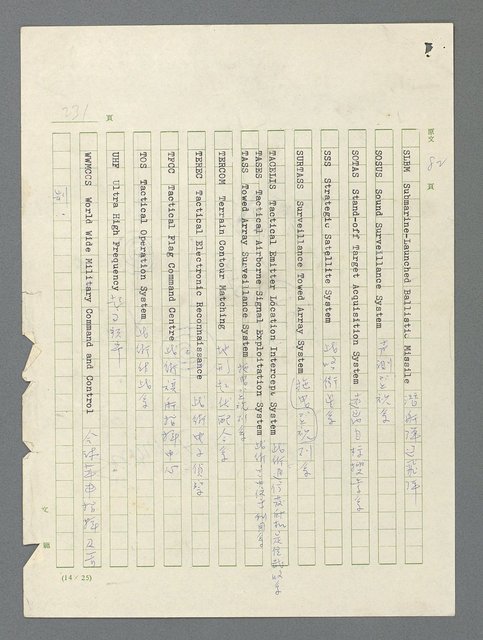 原文 82 頁
SLBM Submarine-Launched Ballistic Missile 潛射彈道飛彈
SOSUS Sound Surveillance System 音測監視系
SOTAS Stand-off Target Acquisition System
SSS Strategic Satellite System
SURTASS Surveillance Towed Array System 拖曳監視列系
TACELIS Tactical Emitter Location Intercept System
TASES Tactical Airborne Signal Exploitation System
TASS Towed Array Surveillance System
TERCOM Terrain Contour Matching 地形
TEREC Tactical Electronic Reconnaissance 戰術電子偵察
TFCC Tactical Flag Command Centre 戰術旗艦指揮中心
TOS Tactical Operation System
UHF Ultra High Frequency 超高頻率
WWMCCS World Wide Military Command and Control 全球軍事指揮及管
制
231 頁
文稿
(14×25)